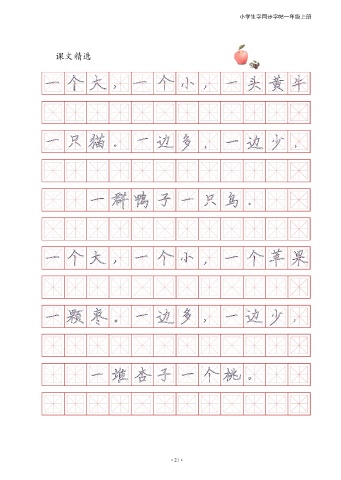 小学生字同步字帖一年级上册
课文精选
一个大，一个小，一头黄牛
一只猫。一边多，一边少，
一群鸭子一只鸟。
一个大，一个小，一个苹果
一颗枣。一边多，一边少，
一堆杏子一个桃。
·21·